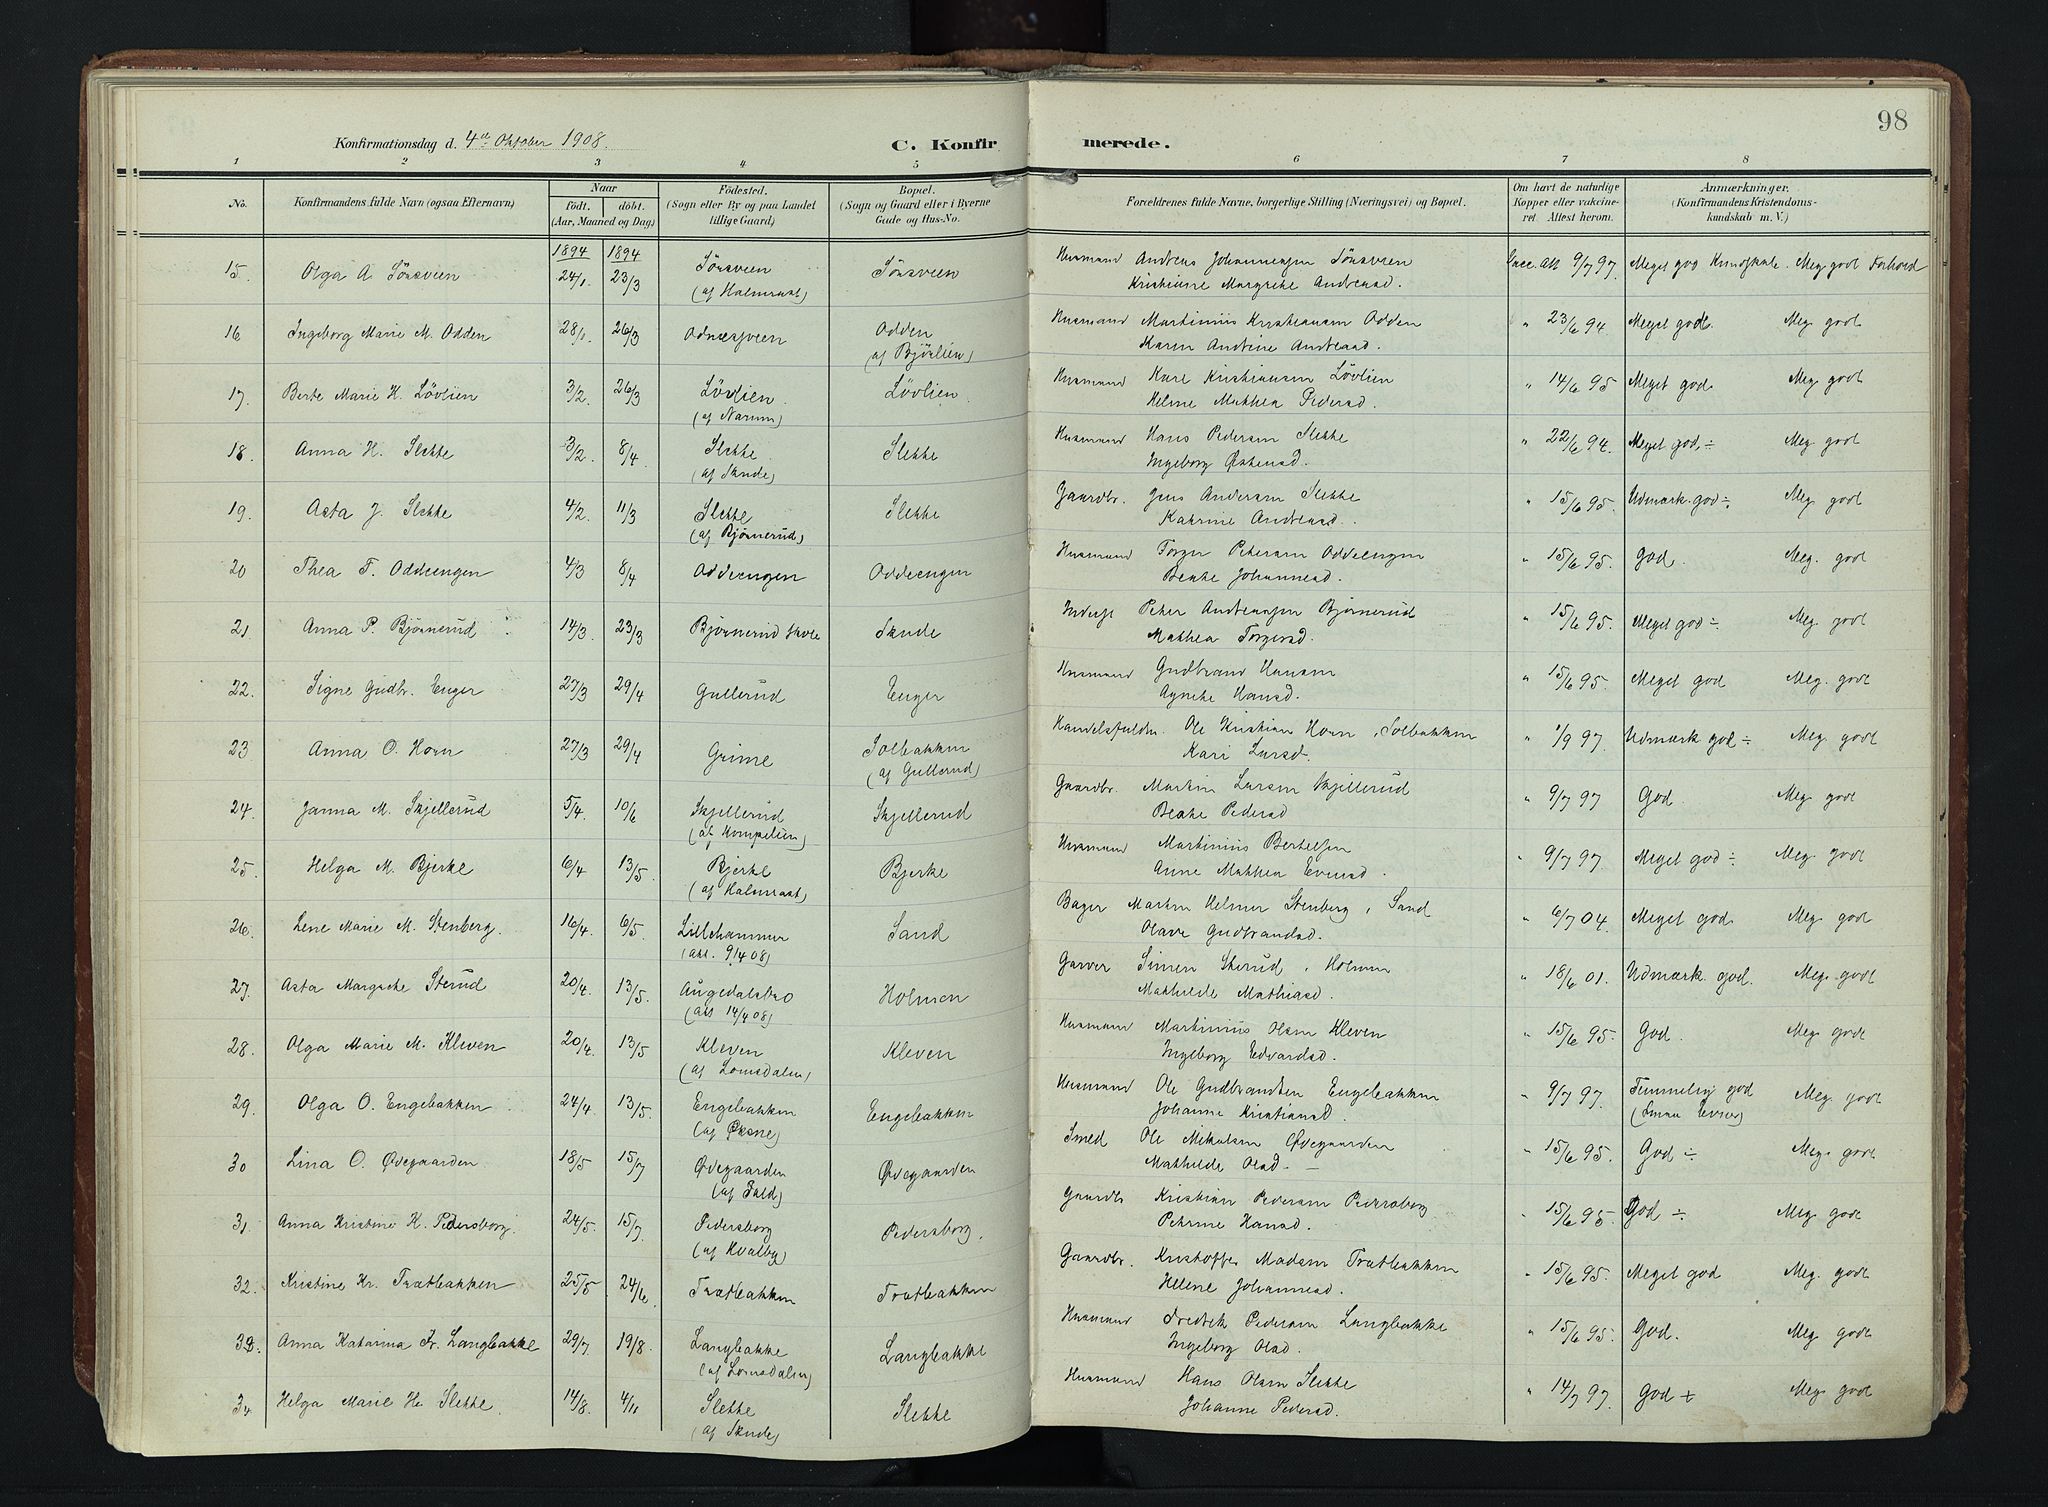 98
Konfirmationsdag d. 4de Oktober 1908.
C. Konfirmerede.
1 2 3 4 5 6 7 8
No.
Konfirmandens fulde Navn (ogsaa Efternavn)
Naar
født. døbt.
(Aar, Maaned og Dag)
Fødested.
(Sogn eller By og paa Landet
tillige Gaard)
Bopæl.
(Sogn og Gaard eller i Byerne
Gade og Hus-No.
Forældrenes fulde Navne, borgerlige Stilling (Næringsvei) og Bopæl.
Om havt de naturlige
Kopper eller vakcine-
ret. Attest herom.
Anmærkninger.
(Konfirmandens Kristendoms-
kundskab m. V.)
1894 1894
15. Olga A. Sönsveen 24/1. 23/3 Sönsveen Sönsveen Husmand Andreas Johannessen Sönsveen Vacc. att 9/7 97. Meget god Kundskab. Meg. godt Forhold
(af Halmraast) Kristiane Margrethe Andreasd.
16 Ingeborg Marie M. Odden 28/1. 26/3 Odnæsveien Odden Husmand Martinius Kristiansen Odden " 23/6 94 Meget god. Meg. godt
(af Bjørlien) Karen Andrine Andreasd.
17. Berte Marie K. Løvlien 3/2. 26/3 Løvlien Løvlien Husmand Karl Kristiansen Løvlien " 14/6 95 Meget god. Meg. godt
(af Narum) Helene Mathea Pedersd.
18 Anna H. Slette 3/2. 8/4 Slette Slette Husmand Hans Pedersen Slette " 22/6 94. Meget god ÷ Meg. godt
(af Skude) Ingeborg Østensd.
19. Asta J. Slette 4/2. 11/3 Slette Slette Gaardbr. Jens Andersen Slette " 15/6 95 Udmærk. god ÷. Meg. godt
(af Bjørnerud) Katrine Andreasd.
20 Thea T. Oddeengen 4/3 8/4 Oddeengen Oddeengen Husmand Torger Petersen Oddeengen " 15/6 95. god. Meg. godt
Beate Johannesd.
21 Anna P. Bjørnerud 14/3. 23/3 Bjørnerud Skole Skude Inderst Peter Andreassen Bjørnerud " 15/6 95. Meget god ÷ Meg. godt
Mathea Torgersd.
22. Signe Gudbr. Enger 27/3 29/4 Gullerud Enger Husmand Gudbrand Hansen " 15/6 95. Meget god Meg. godt
Agnethe Hansd.
23 Anna O. Horn 27/3 29/4 Grime Solbakken Handelsfuldm. Ole Kristian Horn, Solbakken " 1/9 97. Udmærk god ÷ Meg. godt
(af Gullerud) Kari Larsd.
24. Janna M. Skjellerud 5/4. 10/6 Skjellerud Skjellerud Gaardbr. Martin Larsen Skjellerud " 9/7 97 God. Meg. godt
(af Kompelien) Beate Pedersd
25. Helga M. Bjerke 6/4 13/5. Bjerke Bjerke Husmand Martinius Bertelsen " 9/7 97. Meget god ÷ Meg. godt
(af Halmraast) Anne Mathea Evensd.
26. Lene Marie M. Stenberg. 16/4. 6/5. Lillehammer Sand Bager Martin Helmer Stenberg, Sand " 6/7 04. Meget god. Meg. godt
(att. 9/4 08) Olave Gudbrandsd.
27. Asta Margrethe Sterud 20/4. 13/5. Augedalsbro Holmen Garver Simen Sterud, Holmen " 18/6 01. Udmærk. god. Meg. godt
(att 14/4 08) Mathilde Mathiasd.
28. Olga Marie M. Kleven 20/4. 13/5 Kleven Kleven Husmand Martinius Olsen Kleven " 15/6 95. God. Meg. godt
(af Lomsdalen) Ingeborg Edvardsd.
29. Olga O. Engebakken 24/4. 13/5. Engebakken Engebakken Husmand Ole Gudbrandsen Engebakken " 9/7 97. Temmelig god Meg. godt
(af Øksne) Johanne Kristiansd. (smaa Evner)
30 Lina O. Ødegaarden 18/5 15/7 Ødegaarden Ødegaarden Smed Ole Mikalsen Ødegaarden " 15/6 95. God ÷ Meg. godt
Mathilde Olsd.
31. Anna Kristine K. Pedersborg. 24/5. 15/7. Pedersborg Pedersborg. Gaardb Kristian Pedersen Pedersborg " 15/6 95. God ÷ Meg. godt
(af Kvalby) Petrine Hansd.
32. Kristine Kr. Trætbakken 25/5 24/6. Trætbakken Trætbakken Gaardbr. Kristoffer Madsen Trætbakken " 15/6 95. Meget god Meg. godt
Helene Johannesd.
33. Anna Katarina Fr. Langbakke 29/7 19/8. Langbakke Langbakke Husmand Fredrik Pedersen Langbakke " 15/6 95. God. Meg. godt
(af Lomsdalen) Ingeborg Olsd.
34 Helga Marie H. Slette. 14/8. 4/11 Slette Slette Husmand Hans Olsen Slette " 14/7 97. God ÷ Meg. godt
(af Skude) Johanne Pedersd.